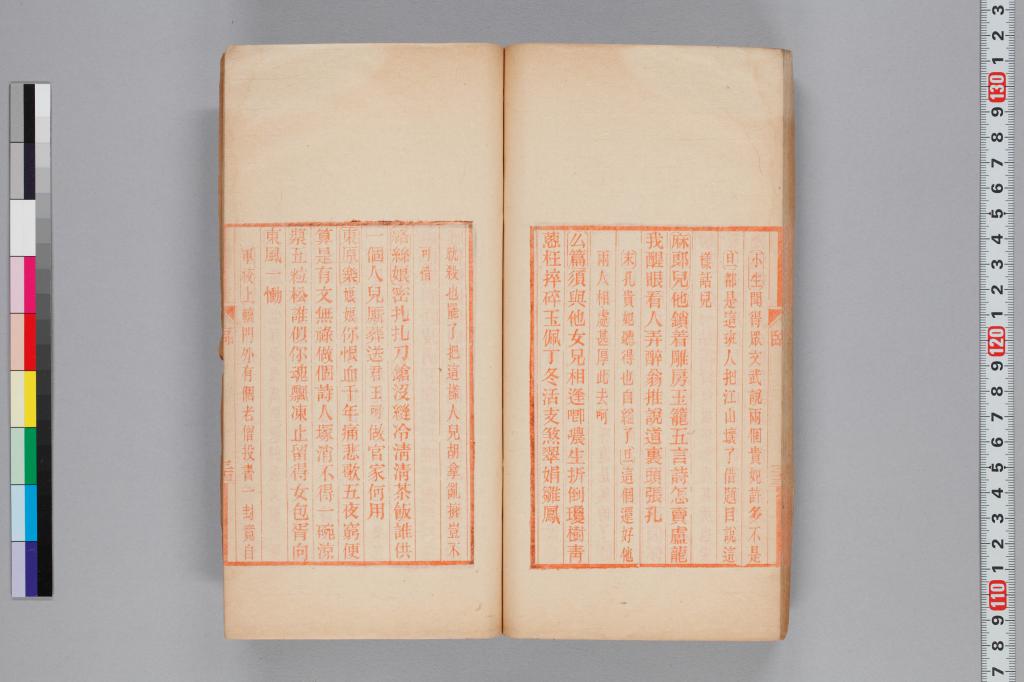 小生聞得眾文武說兩個貴妃許多不是
旦都是這班人把江山壞了借題目說這
樣話兒
麻郎兒他鎖着雕房玉籠五言詩怎賣盧龍
我醒眼看人弄醉翁推說道裏頭張孔
末孔貴妃聽得也自縊了旦這個還好他
兩人相處甚厚此去呵
么篇須與他女兒相逢喞噥生折倒瓊樹青
蔥枉捽碎玉佩丁冬活支煞翠娟雛鳳
就殺也罷了把這樣人兒胡拿亂擁豈不
可惜
絡絲娘密扎扎刀鎗沒縫冷清清茶飯誰供
一個人兒厮葬送君王呵做官家何用
東原樂娘娘你恨血千年痛悲歌五夜窮便
算是有文無祿做個詩人塚消不得一碗涼
漿五粒松誰似你魂飄凍止留得女包胥向
東風一慟
軍校上轅門外有個老僧投書一封竟自